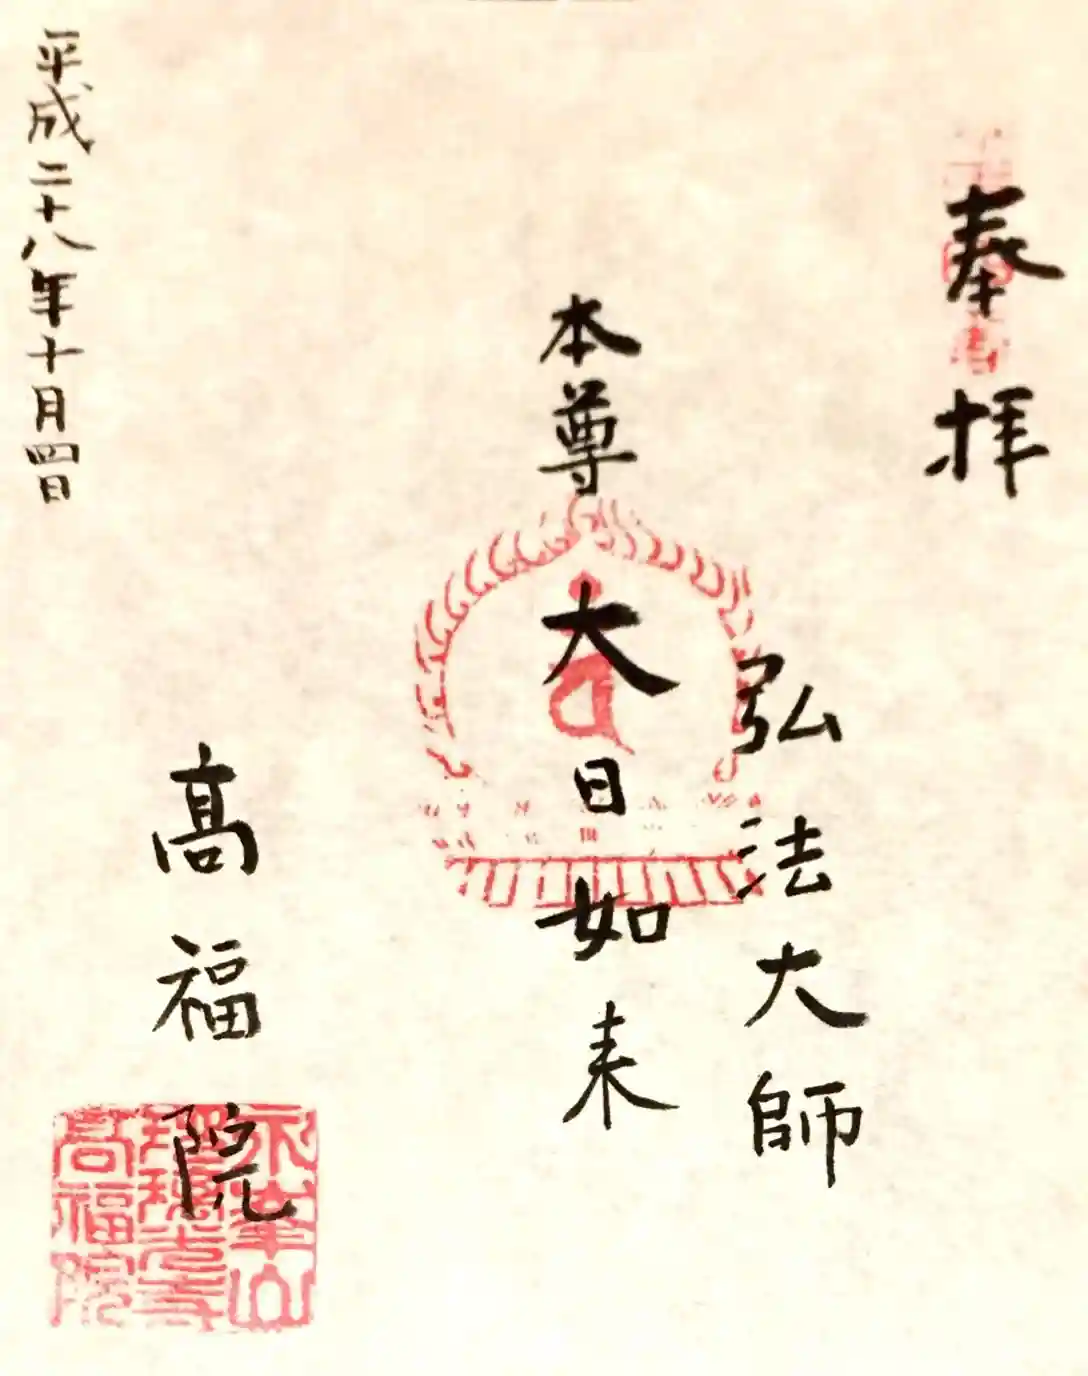 奉拝
弘法大師
本尊
大日如来
髙福院
平成二十八年十月四日
永峯山
瑠璃光寺
高福院